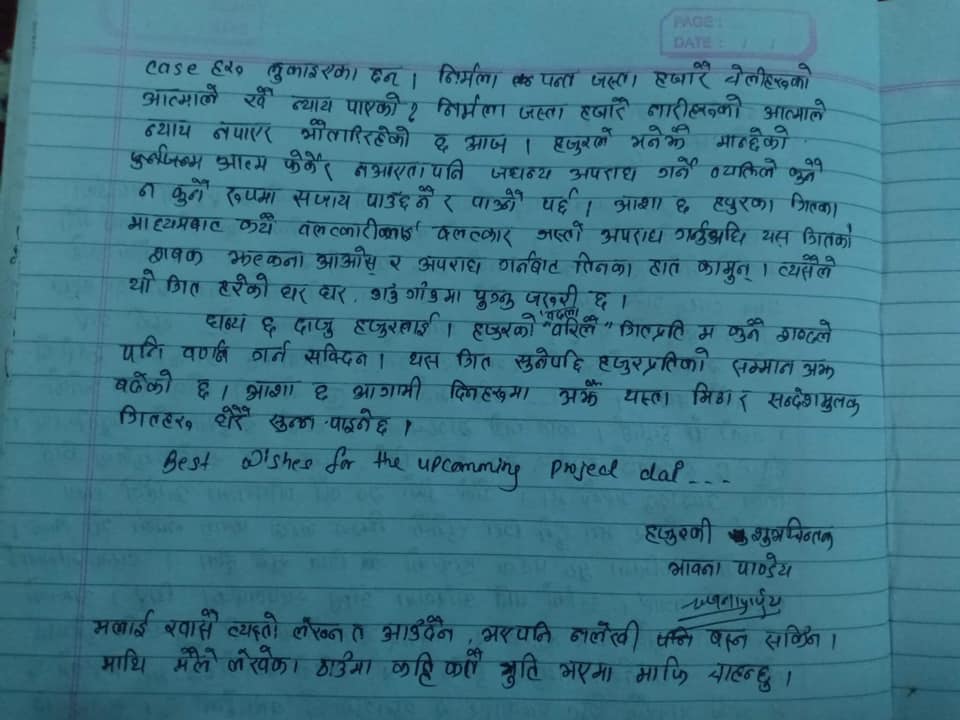 PAGE :
DATE : / /
case हरु लुकाइएका छन् । निर्मला पन्त जस्ता हजारौ चेलीहरुको
आत्माले खै न्याय पाएको ? निर्मला जस्ता हजारौ नारीहरुको आत्माले
न्याय नपाएर भौतारिरहेको छ आज । हजुरले भनेझै मान्छेको
पुर्नजन्म आत्म फेर्केर नआएता पनि जघन्य अपराध गर्ने व्यक्तिले कुनै
न कुनै रुपमा सजाय पाउँछ नै र पाउनै पर्छ । आशा छ हजुरका गितका
माध्यमबाट कयै बलत्कारीलाई बलत्कार जस्तो अपराध गर्नुअघि यस गितको
झलक झल्कना आओस् र अपराध गर्नबाट तिनका हात कामुन् । त्यसैले
यो गित हरेको घर घर, गाउँ गाँउमा पुग्नु जरुरी छ ।
धन्य छ दाजु हजुरलाई । हजुरको "बदला वरिलै" गितप्रति म कुनै शब्दले
पनि वर्णन गर्न सक्दिन । यस गित सुनेपछि हजुरप्रतिको सम्मान अझ
बढेको छ । आशा छ आगामी दिनहरुमा अझै यस्ता मिठा र सन्देशमुलक
गितहरु धेरै सुन्न पाइनेछ ।
Best wishes for the upcomming project dai ....
हजुरकी शुभचिन्तक
भावना पाण्डेय
मलाई खासै त्यस्तो लेख्न त आउँदैन, भएपनि नलेखी पनि बस्न सकिन ।
माथि मैले लेखेका ठाउँमा कहि कतै त्रुति भएमा माफि चाहन्छु ।